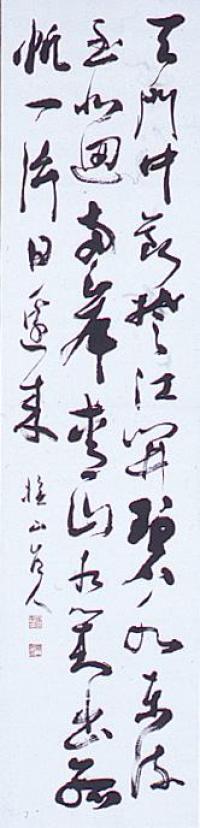 天門中斷楚江開碧水東流
至此迴兩岸青山相對出孤
帆一片日邊來
山人